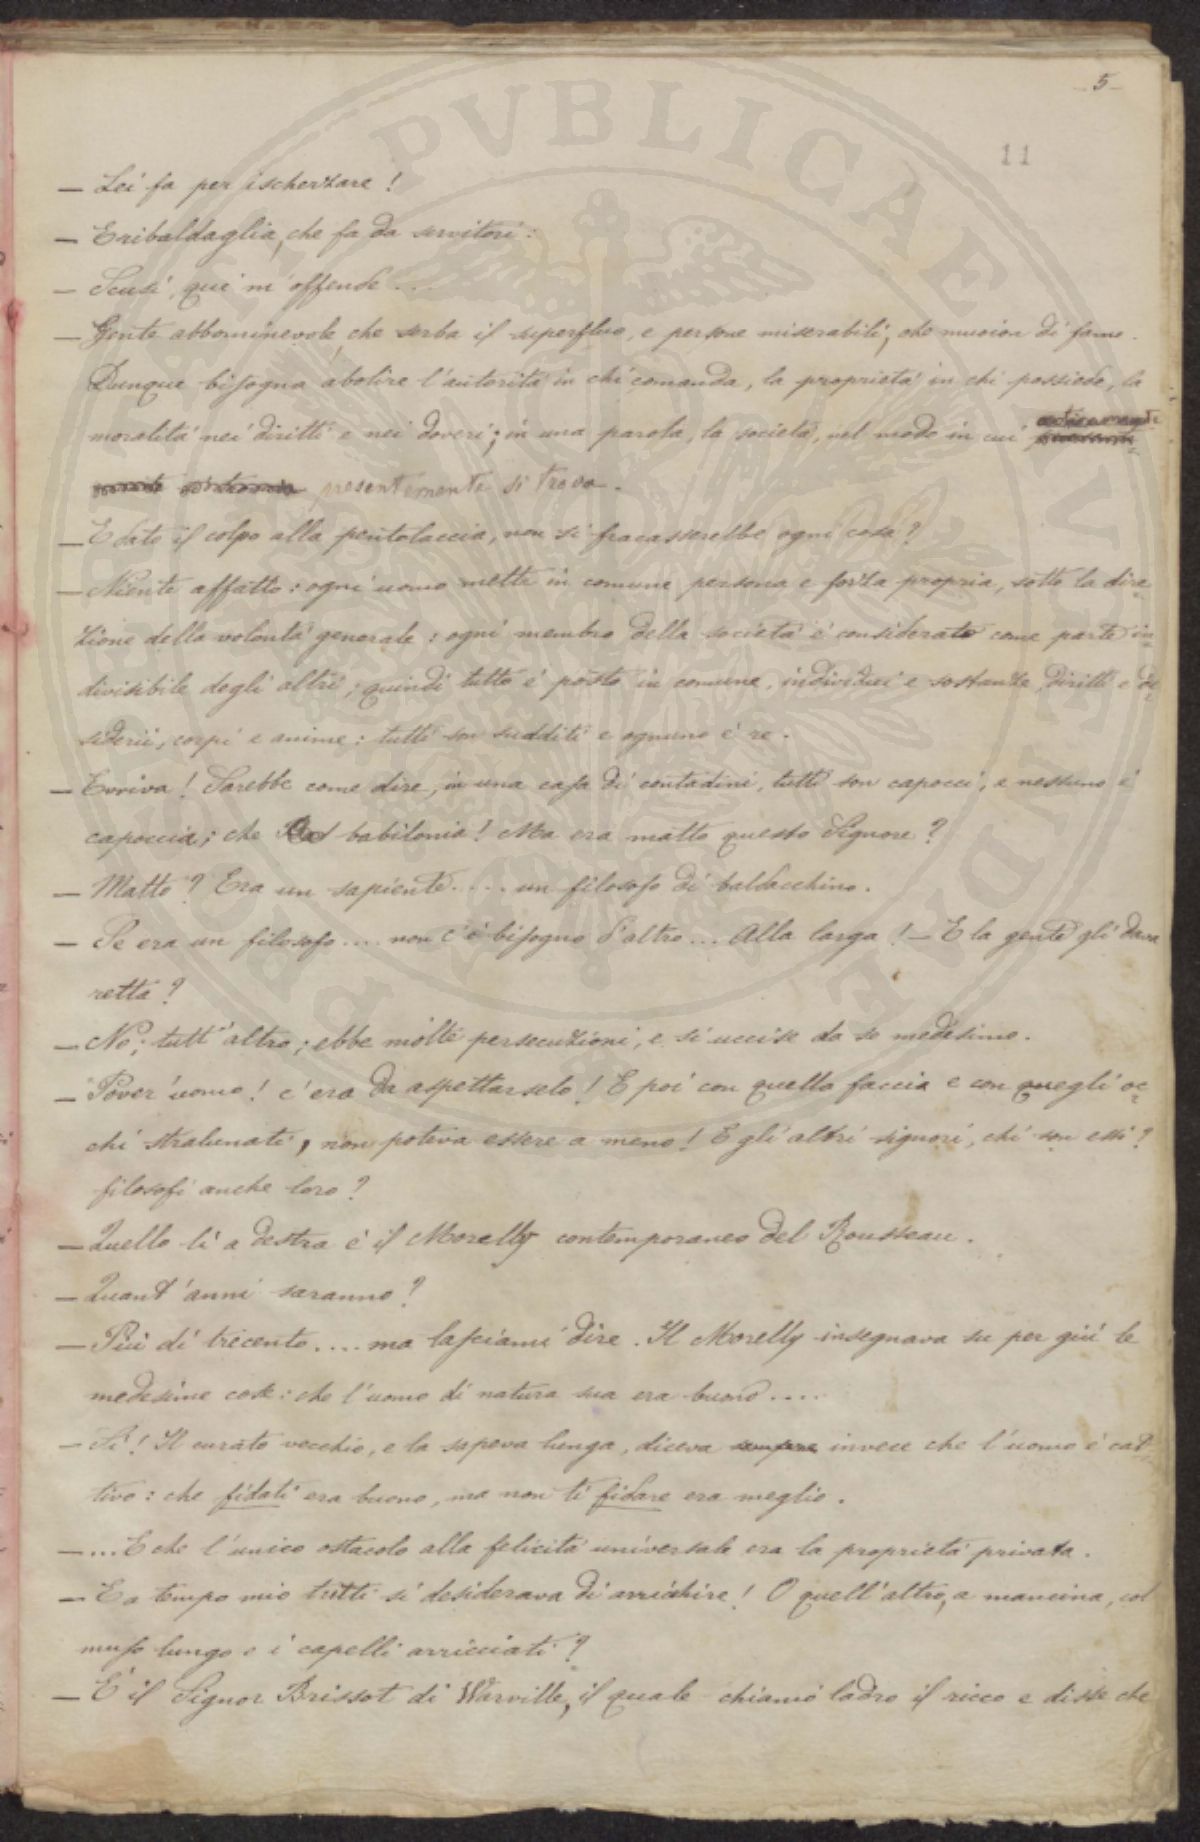 - 5 -
11
— Lei fa per ischerzare!
— E ribaldaglia, che fa da servitori:
— Scusi, qui m'offende ....
— Gente abbominevole che serba il superfluo, e persone miserabili, che muoion di fame.
Dunque bisogna abolire l'autorità in chi comanda, la proprietà in chi possiede, la
moralità nei diritti e nei doveri; in una parola, la società, nel modo in cui
presentemente si trova.
— E dato il colpo alla pentolaccia, non si fracasserebbe ogni cosa?
— Niente affatto: ogni uomo mette in comune persona e forza propria, sotto la dire=
zione della volontà generale: ogni membro della società è considerato come parte in=
divisibile degli altri; quindi tutto è posto in comune, individui e sostanze, diritti e de=
siderii, corpi e anime: tutti son sudditi e ognuno è re.
— Evviva! Sarebbe come dire, in una casa di contadini, tutti son capocci, e nessuno è
capoccia; che babilonia! Ma era matto questo Signore?
— Matto? Era un sapiente..... un filosofo di baldacchino.
— Se era un filosofo.... non c'è bisogno d'altro... Alla larga! — E la gente gli dava
retta?
— No; tutt'altro; ebbe molte persecuzioni, e si uccise da se medesimo.
— Pover'uomo! c'era da aspettarselo! E poi con quella faccia e con quegli oc=
chi stralunati, non poteva essere a meno! E gli altri signori, chi son essi?
filosofi anche loro?
— Quello lì a destra è il Morelly contemporaneo del Rousseau.
— Quant'anni saranno?
— Più di trecento.... ma lasciami dire. Il Morelly insegnava su per giù le
medesime cose: che l'uomo di natura sua era buono.....
— Sì! Il curato vecchio, e la sapeva lunga, diceva sempre invece che l'uomo è cat=
tivo: che fidati era buono, ma non ti fidare era meglio.
— ... E che l'unico ostacolo alla felicità universale era la proprietà privata.
— E a tempo mio tutti si desiderava di arricchire! O quell'altro, a mancina, col
muso lungo e i capelli arricciati?
— È il Signor Brissot di Warville, il quale chiamò ladro il ricco e disse che
PROPRIETAS PVBLICAE VTILITATIS